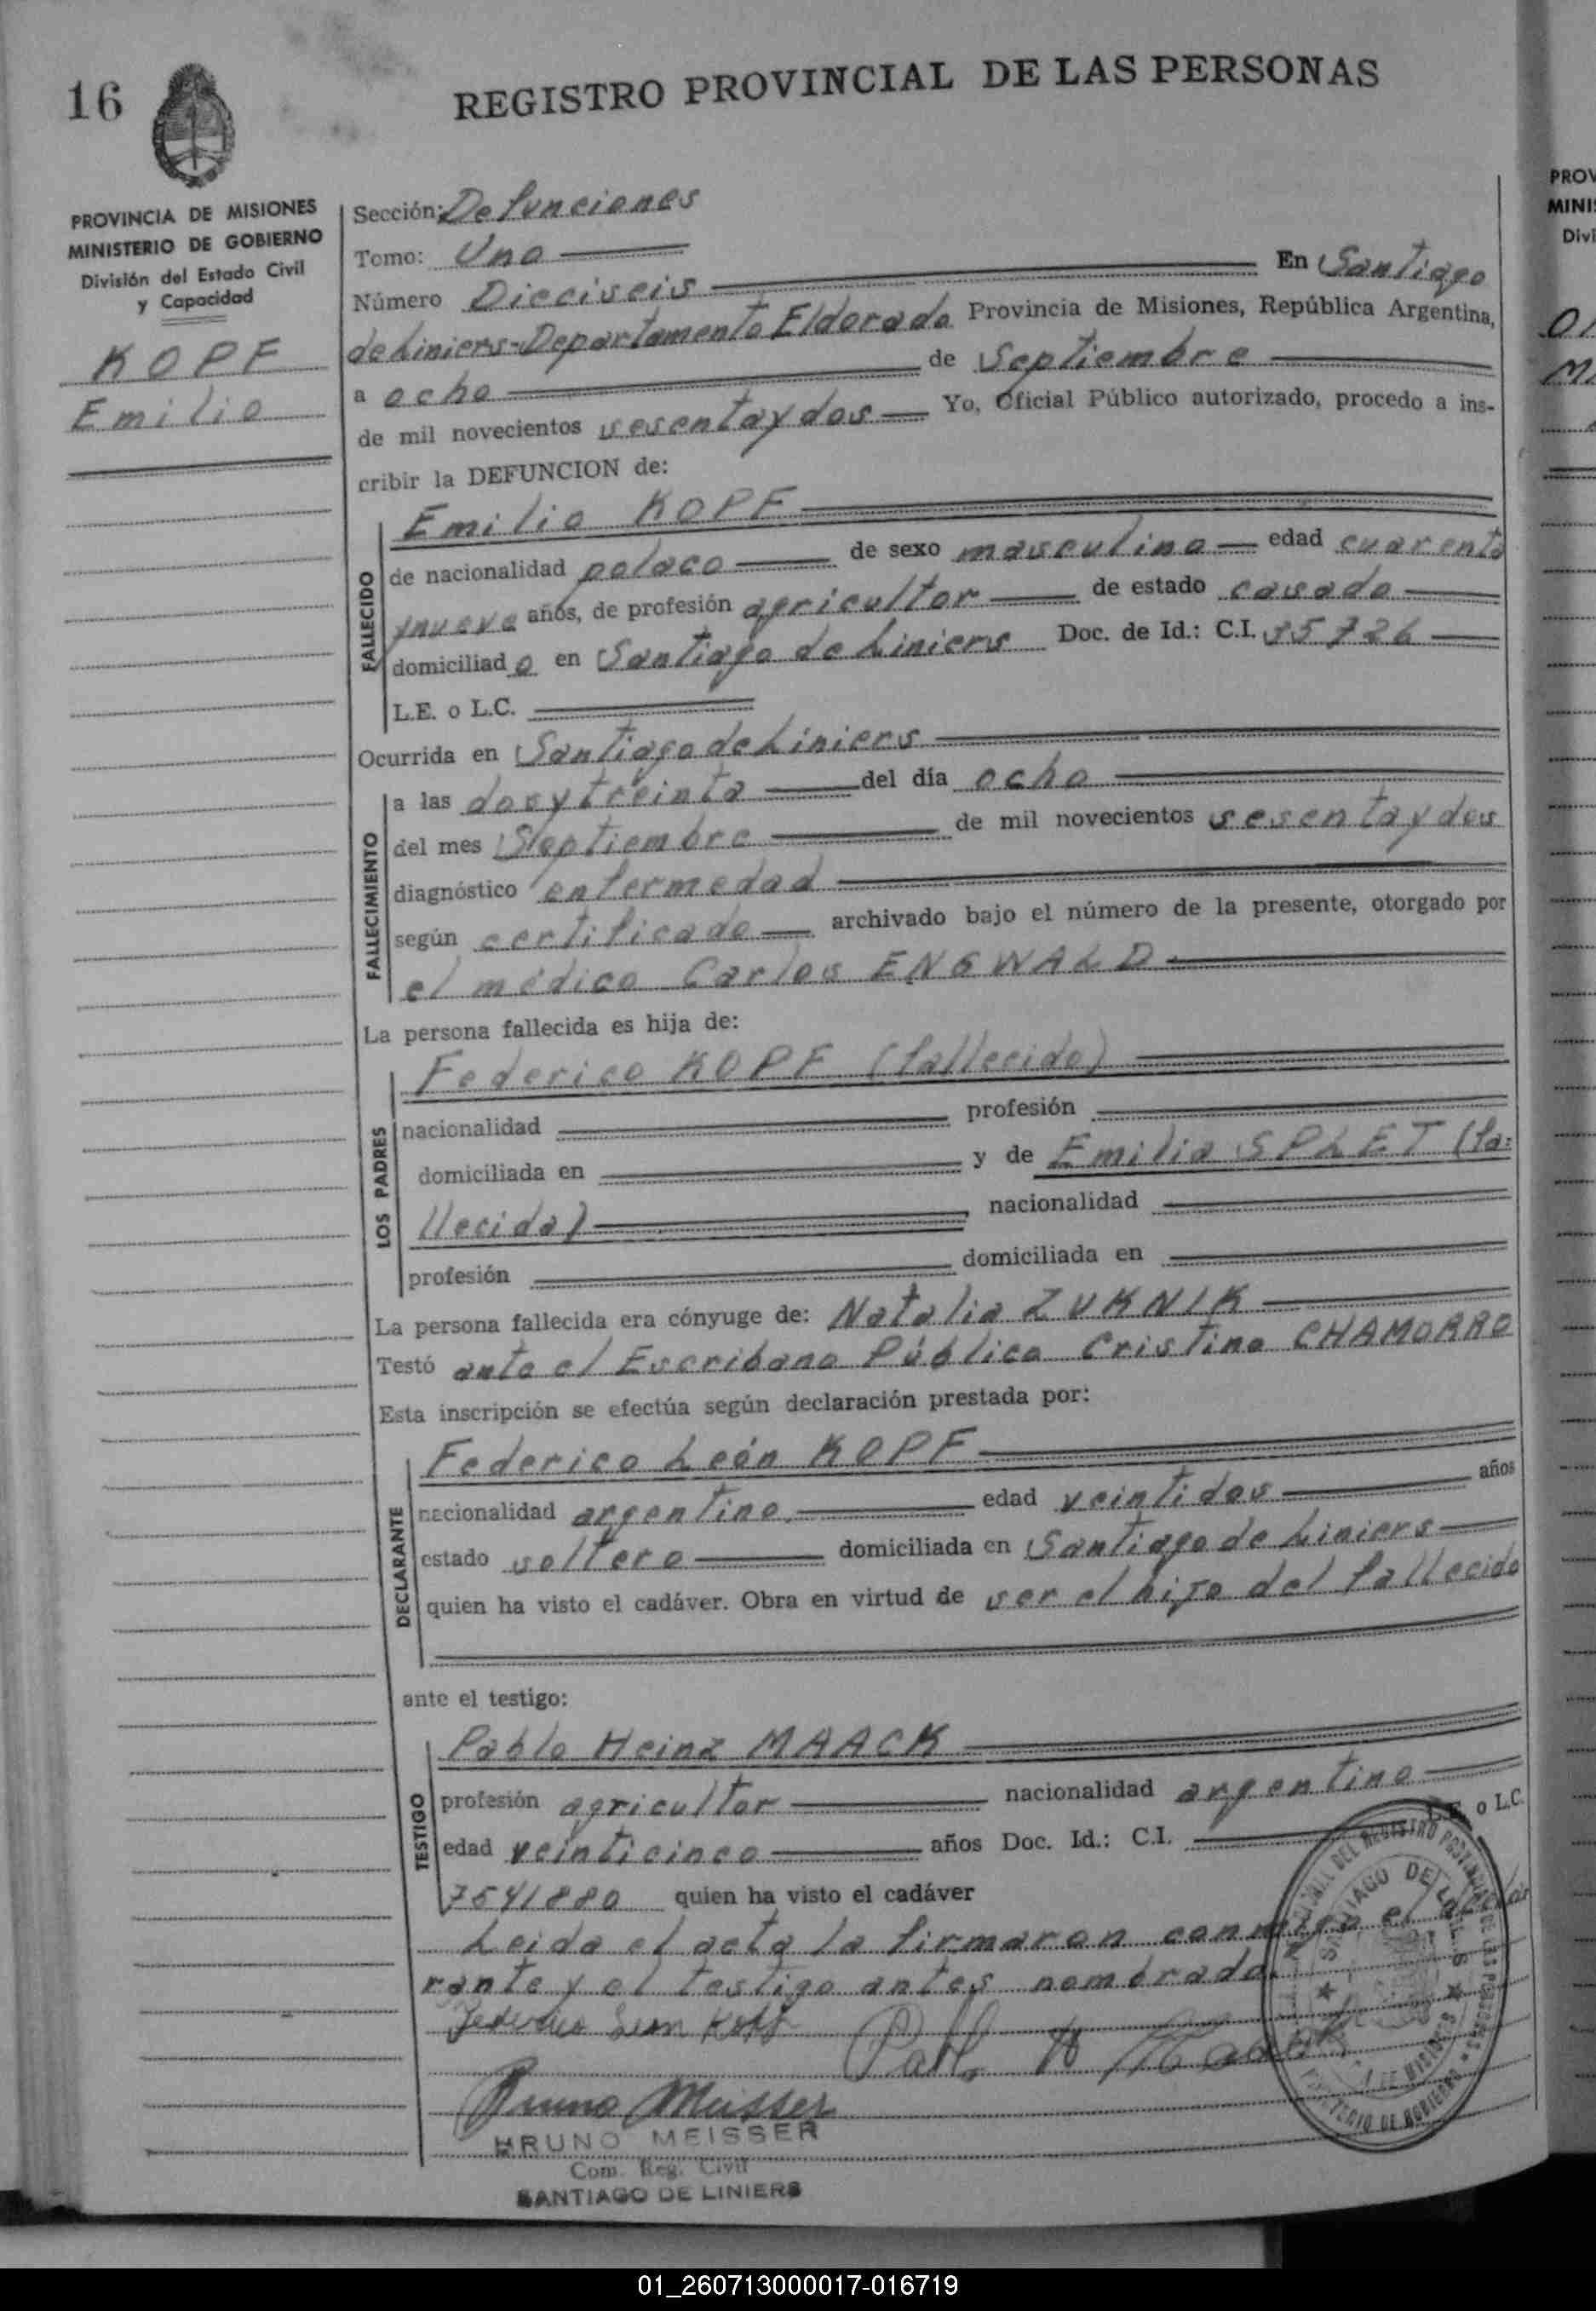 16
REGISTRO PROVINCIAL DE LAS PERSONAS
PROVINCIA DE MISIONES
MINISTERIO DE GOBIERNO
División del Estado Civil
y Capacidad
KOPF
Emilio
Sección: Defunciones
Tomo: Uno
Número Dieciseis En Santiago
de Liniers-Departamento Eldorado Provincia de Misiones, República Argentina,
a ocho de Septiembre
de mil novecientos sesenta y dos Yo, Oficial Público autorizado, procedo a ins-
cribir la DEFUNCION de:
FALLECIDO
Emilio KOPF
de nacionalidad polaco de sexo masculino edad cuarenta
y nueve años, de profesión agricultor de estado casado
domiciliado en Santiago de Liniers Doc. de Id.: C.I. 35726
L.E. o L.C.
Ocurrida en Santiago de Liniers
FALLECIMIENTO
a las dos y treinta del día ocho
del mes Septiembre de mil novecientos sesenta y dos
diagnóstico enfermedad
según certificado archivado bajo el número de la presente, otorgado por
el médico Carlos ENGWALD
La persona fallecida es hija de:
LOS PADRES
Federico KOPF (fallecido)
nacionalidad profesión
domiciliada en y de Emilia SPLET (fa=
llecida) nacionalidad
profesión domiciliada en
La persona fallecida era cónyuge de: Natalia ZUKNIK
Testó ante el Escribano Público Cristino CHAMORRO
Esta inscripción se efectúa según declaración prestada por:
DECLARANTE
Federico León KOPF
nacionalidad argentino edad veintidos años
estado soltero domiciliada en Santiago de Liniers
quien ha visto el cadáver. Obra en virtud de ser el hijo del fallecido
ante el testigo:
TESTIGO
Pablo Heinz MAACK
profesión agricultor nacionalidad argentino
edad veinticinco años Doc. Id.: C.I. L.E. o L.C.
7541880 quien ha visto el cadáver
Leida el acta la firmaron conmigo el decla
rante y el testigo antes nombrado.
Federico Leon Kopf
Pablo H Maack
Bruno Meisser
BRUNO MEISSER
Com. Reg. Civil
SANTIAGO DE LINIERS
01_260713000017-016719